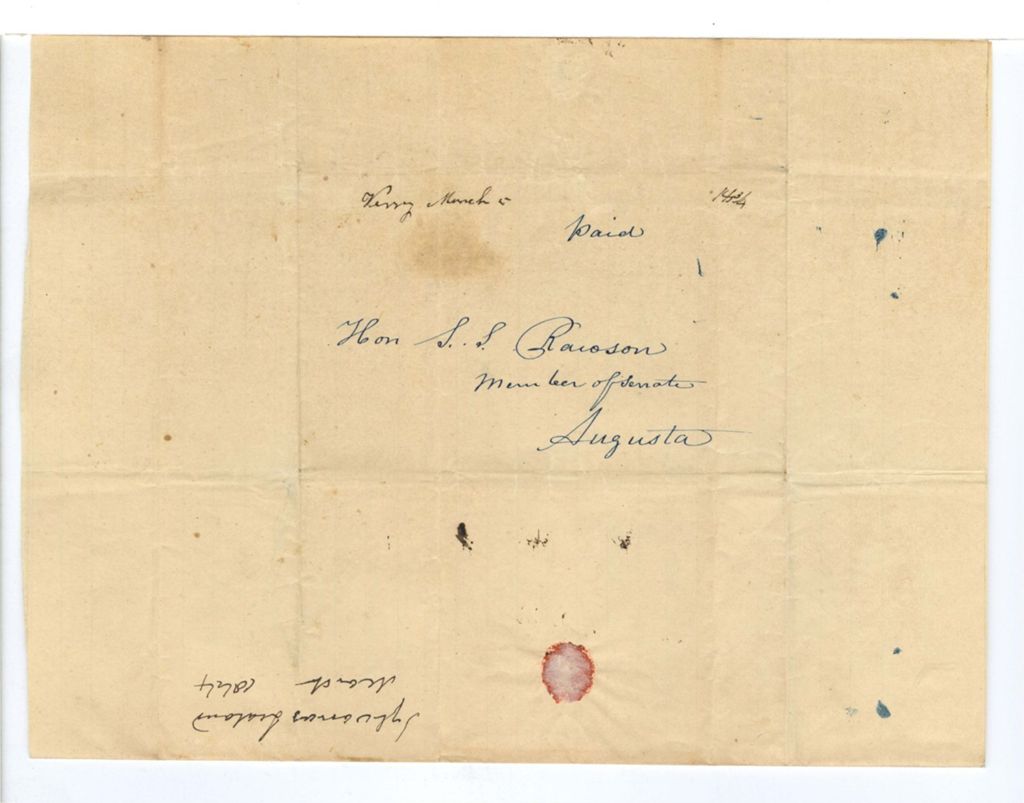 Perry March 5
Paid
Hon S. S. Rawson
Member of Senate
Augusta
Sylvanus Leland
March 1844